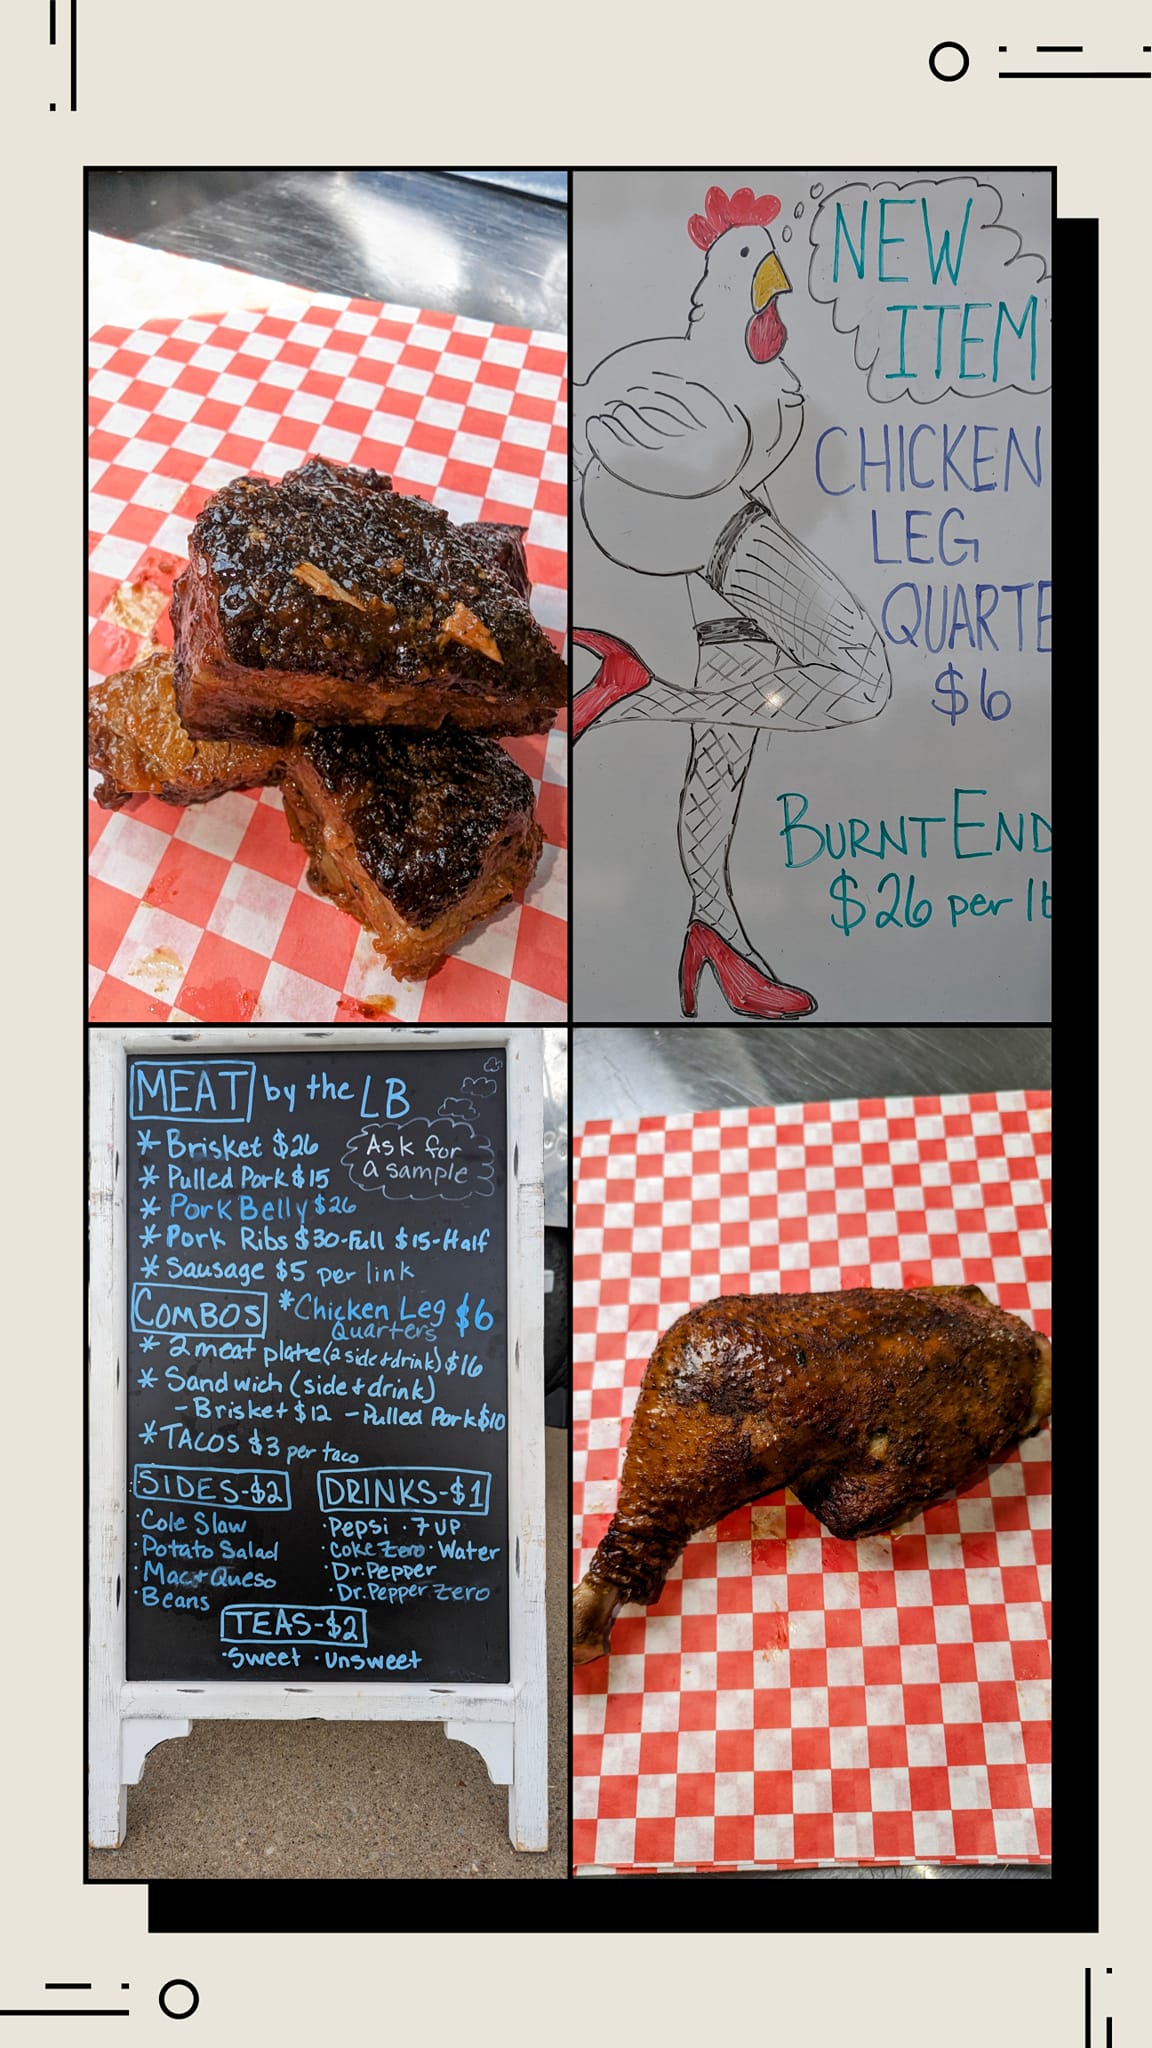 NEW
ITEM
CHICKEN
LEG
QUARTE
$6
BURNT END
$26 per lb
MEAT by the LB
* Brisket $26
Ask for
a sample
* Pulled Pork $15
* Pork Belly $26
* Pork Ribs $30-Full $15-Half
* Sausage $5 per link
COMBOS
* Chicken Leg $6
Quarters
* 2 meat plate (2 side + drink) $16
* Sandwich (side + drink)
- Brisket $12 - Pulled Pork $10
* TACOS $3 per taco
SIDES-$2
· Cole Slaw
· Potato Salad
· Mac + Queso
· Beans
DRINKS-$1
· Pepsi · 7UP
· Coke Zero · Water
· Dr. Pepper
· Dr. Pepper Zero
TEAS-$2
· Sweet · Unsweet